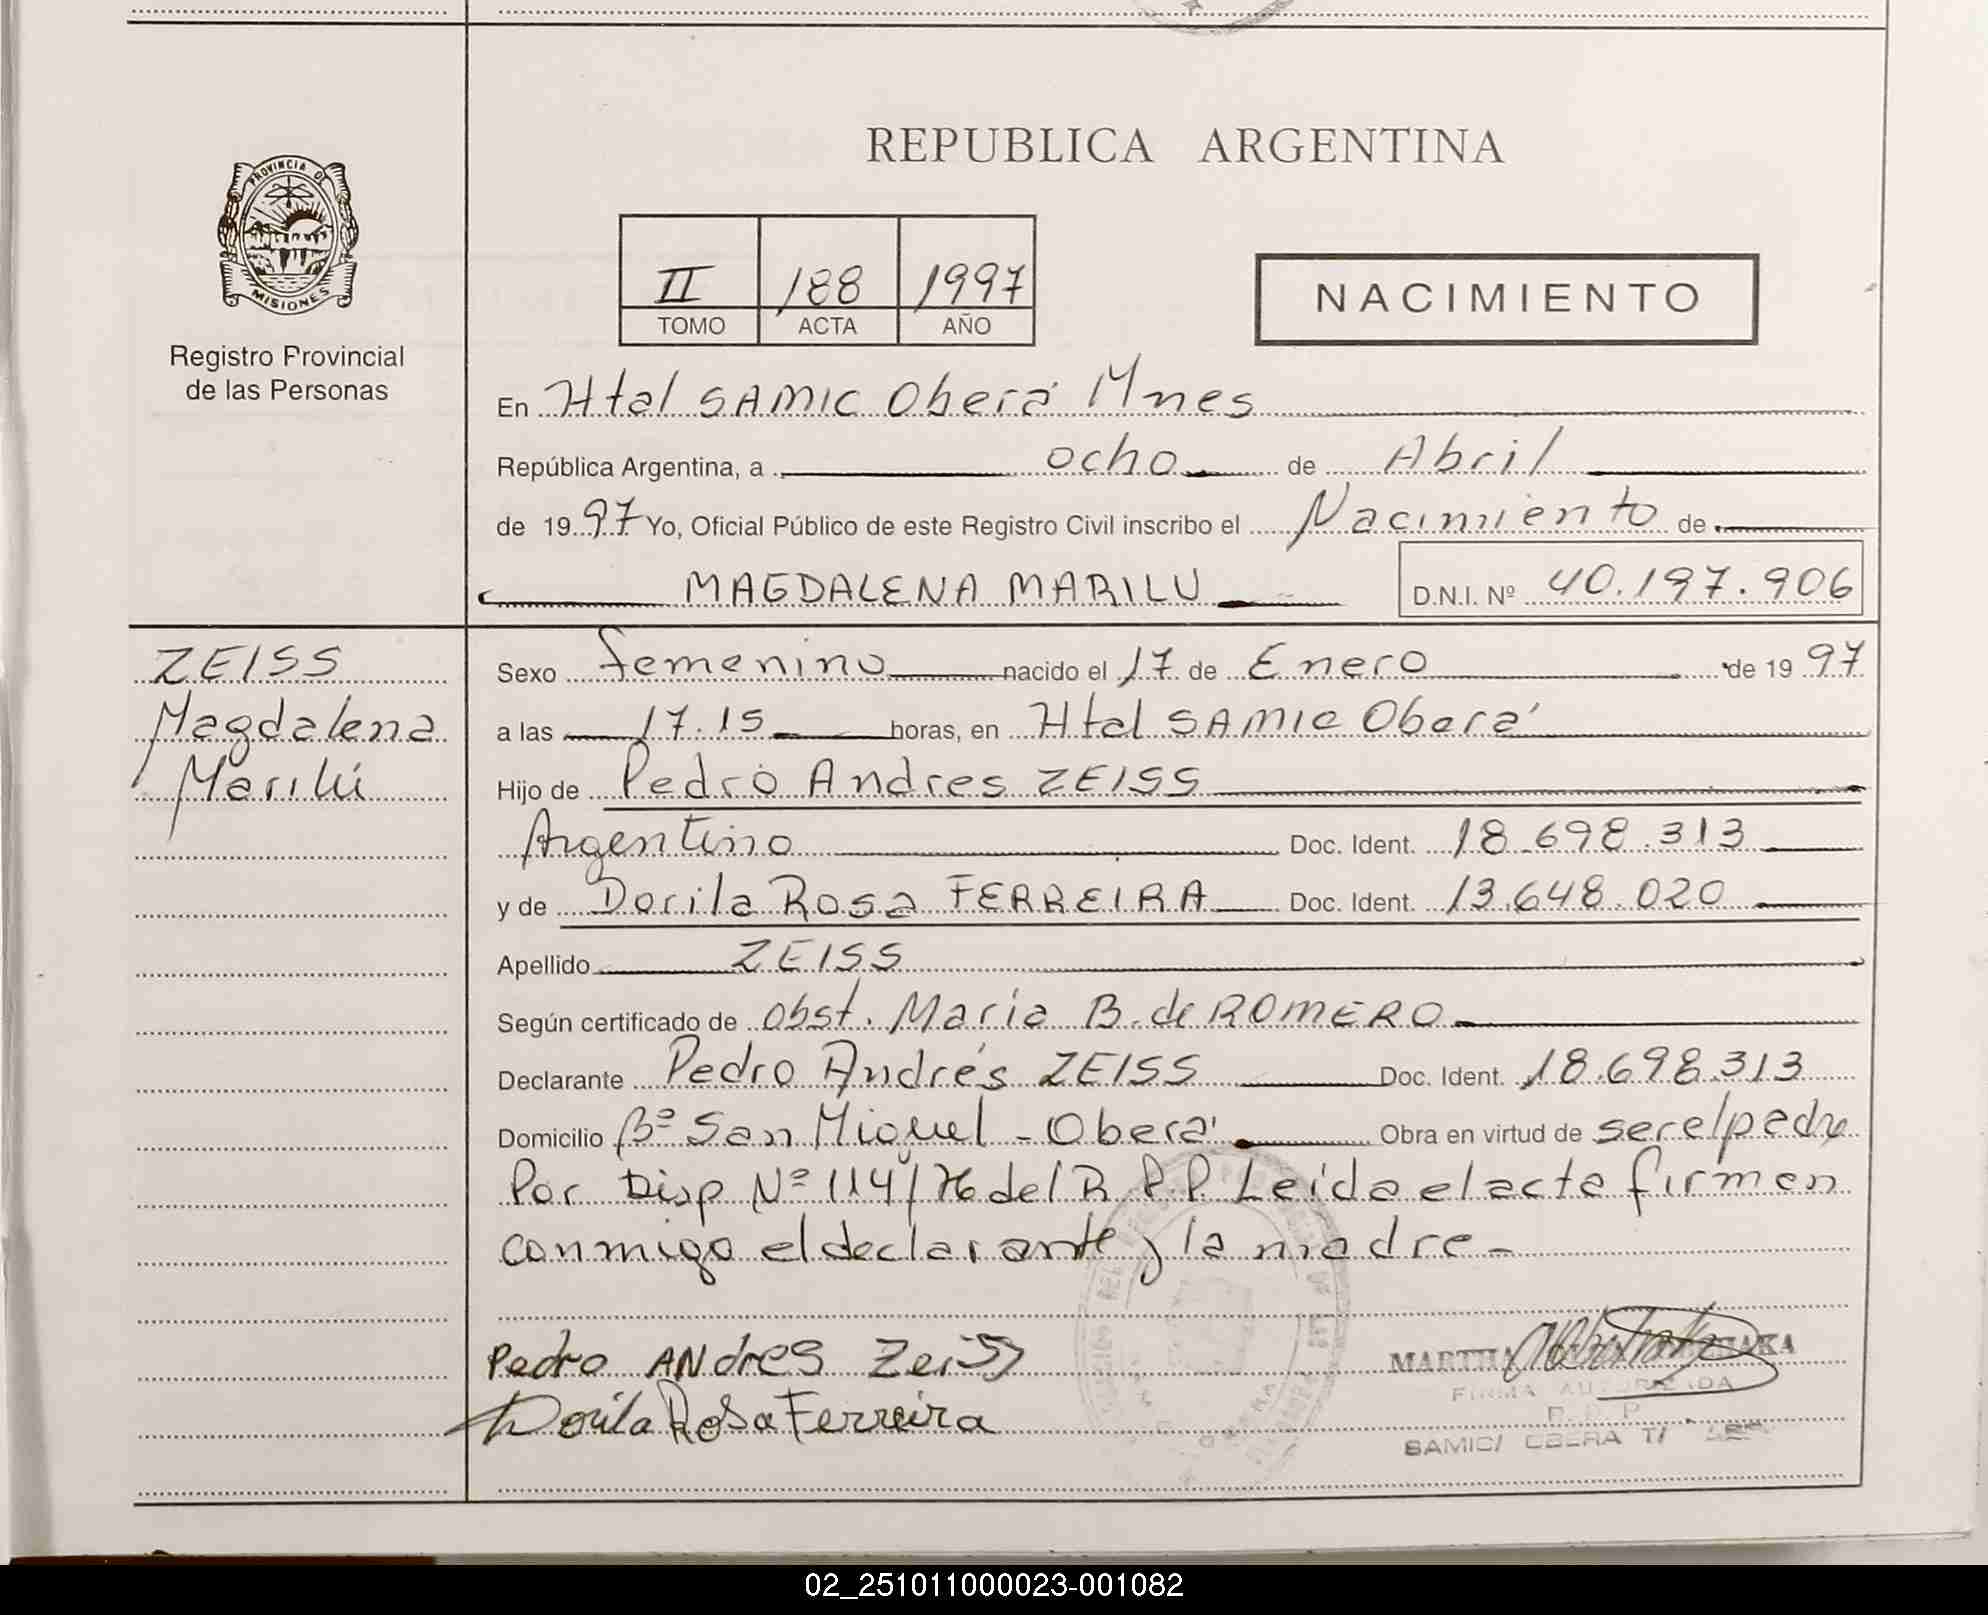 REPUBLICA ARGENTINA
PROVINCIA DE
MISIONES
Registro Provincial
de las Personas
II 188 1997
TOMO ACTA AÑO
NACIMIENTO
En Htal SAMIC Oberá Mnes
República Argentina, a ocho de Abril
de 1997 Yo, Oficial Público de este Registro Civil inscribo el Nacimiento de
MAGDALENA MARILU D.N.I. Nº 40.197.906
ZEISS
Magdalena
Marilú
Sexo femenino nacido el 17 de Enero de 1997
a las 17.15 horas, en Htal SAMIC Oberá
Hijo de Pedro Andres ZEISS
Argentino Doc. Ident. 18.698.313
y de Dorila Rosa FERREIRA Doc. Ident. 13.648.020
Apellido ZEISS
Según certificado de Obst. Maria B. de ROMERO
Declarante Pedro Andrés ZEISS Doc. Ident. 18.698.313
Domicilio Bº San Miguel - Oberá Obra en virtud de ser el padre
Por Disp Nº 114/76 del R.P.P. Leida el acta firman
conmigo el declarante y la madre -
Pedro ANdres Zeiss
Dorila Rosa Ferreira
MARTHA
FIRMA AUTORIZADA
R.P.P.
SAMIC/ OBERA T/
02_251011000023-001082